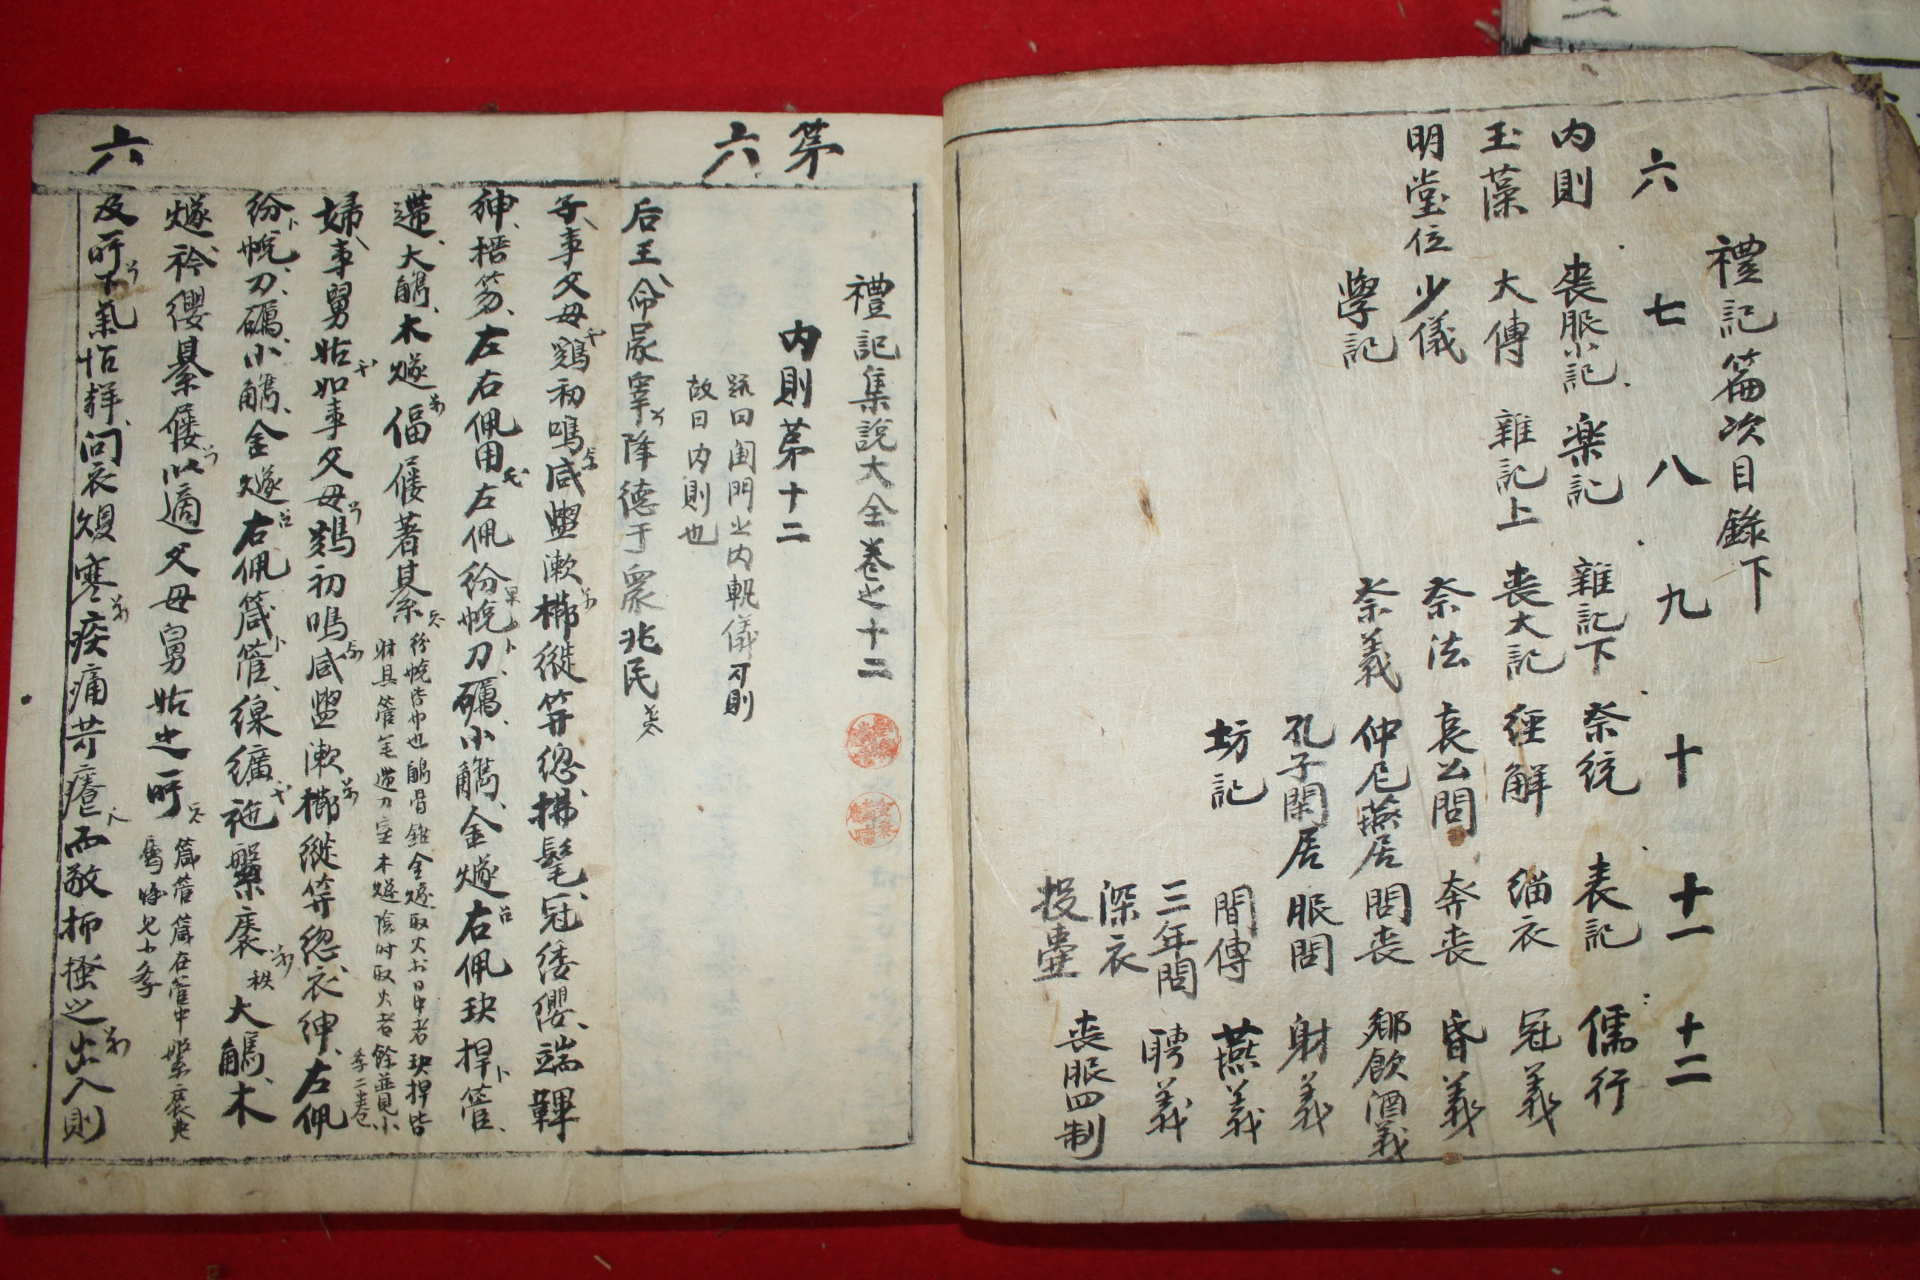 禮記篇次目錄下
六 七 八 九 十 十一 十二
內則 喪服小記 楽記 雜記下 祭統 表記 儒行
玉藻 大傳 雜記上 喪大記 經解 緇衣 冠義
明堂位 少儀 祭法 哀公問 奔喪 昏義
學記 祭義 仲尼燕居 問喪 鄉飲酒義
孔子閑居 服問 射義
坊記 間傳 燕義
三年問 聘義
深衣 喪服四制
投壺
第六
禮記集說大全卷之十二
內則第十二
疏曰閨門之內軌儀可則
故曰內則也
后王命冢宰降德于眾兆民
子事父母鷄初鳴咸盥漱櫛縰笄總拂髦冠緌纓端韠
紳搢笏左右佩用左佩紛帨刀礪小觿金燧右佩玦捍管
遰大觿木燧偪屨著綦
紛帨皆巾也觿骨錐金燧取火於日中者玦捍皆
射具管笔遰刀室木燧陰時取火者餘並見小
學二卷
婦事舅姑如事父母鷄初鳴咸盥漱櫛縰笄總衣紳左佩
紛帨刀礪小觿金燧右佩箴管線纊施縏袠大觿木
燧衿纓綦屨以適父母舅姑之所
及所下氣怡聲問衣燠寒疾痛苛癢而敬抑搔之出入則
六